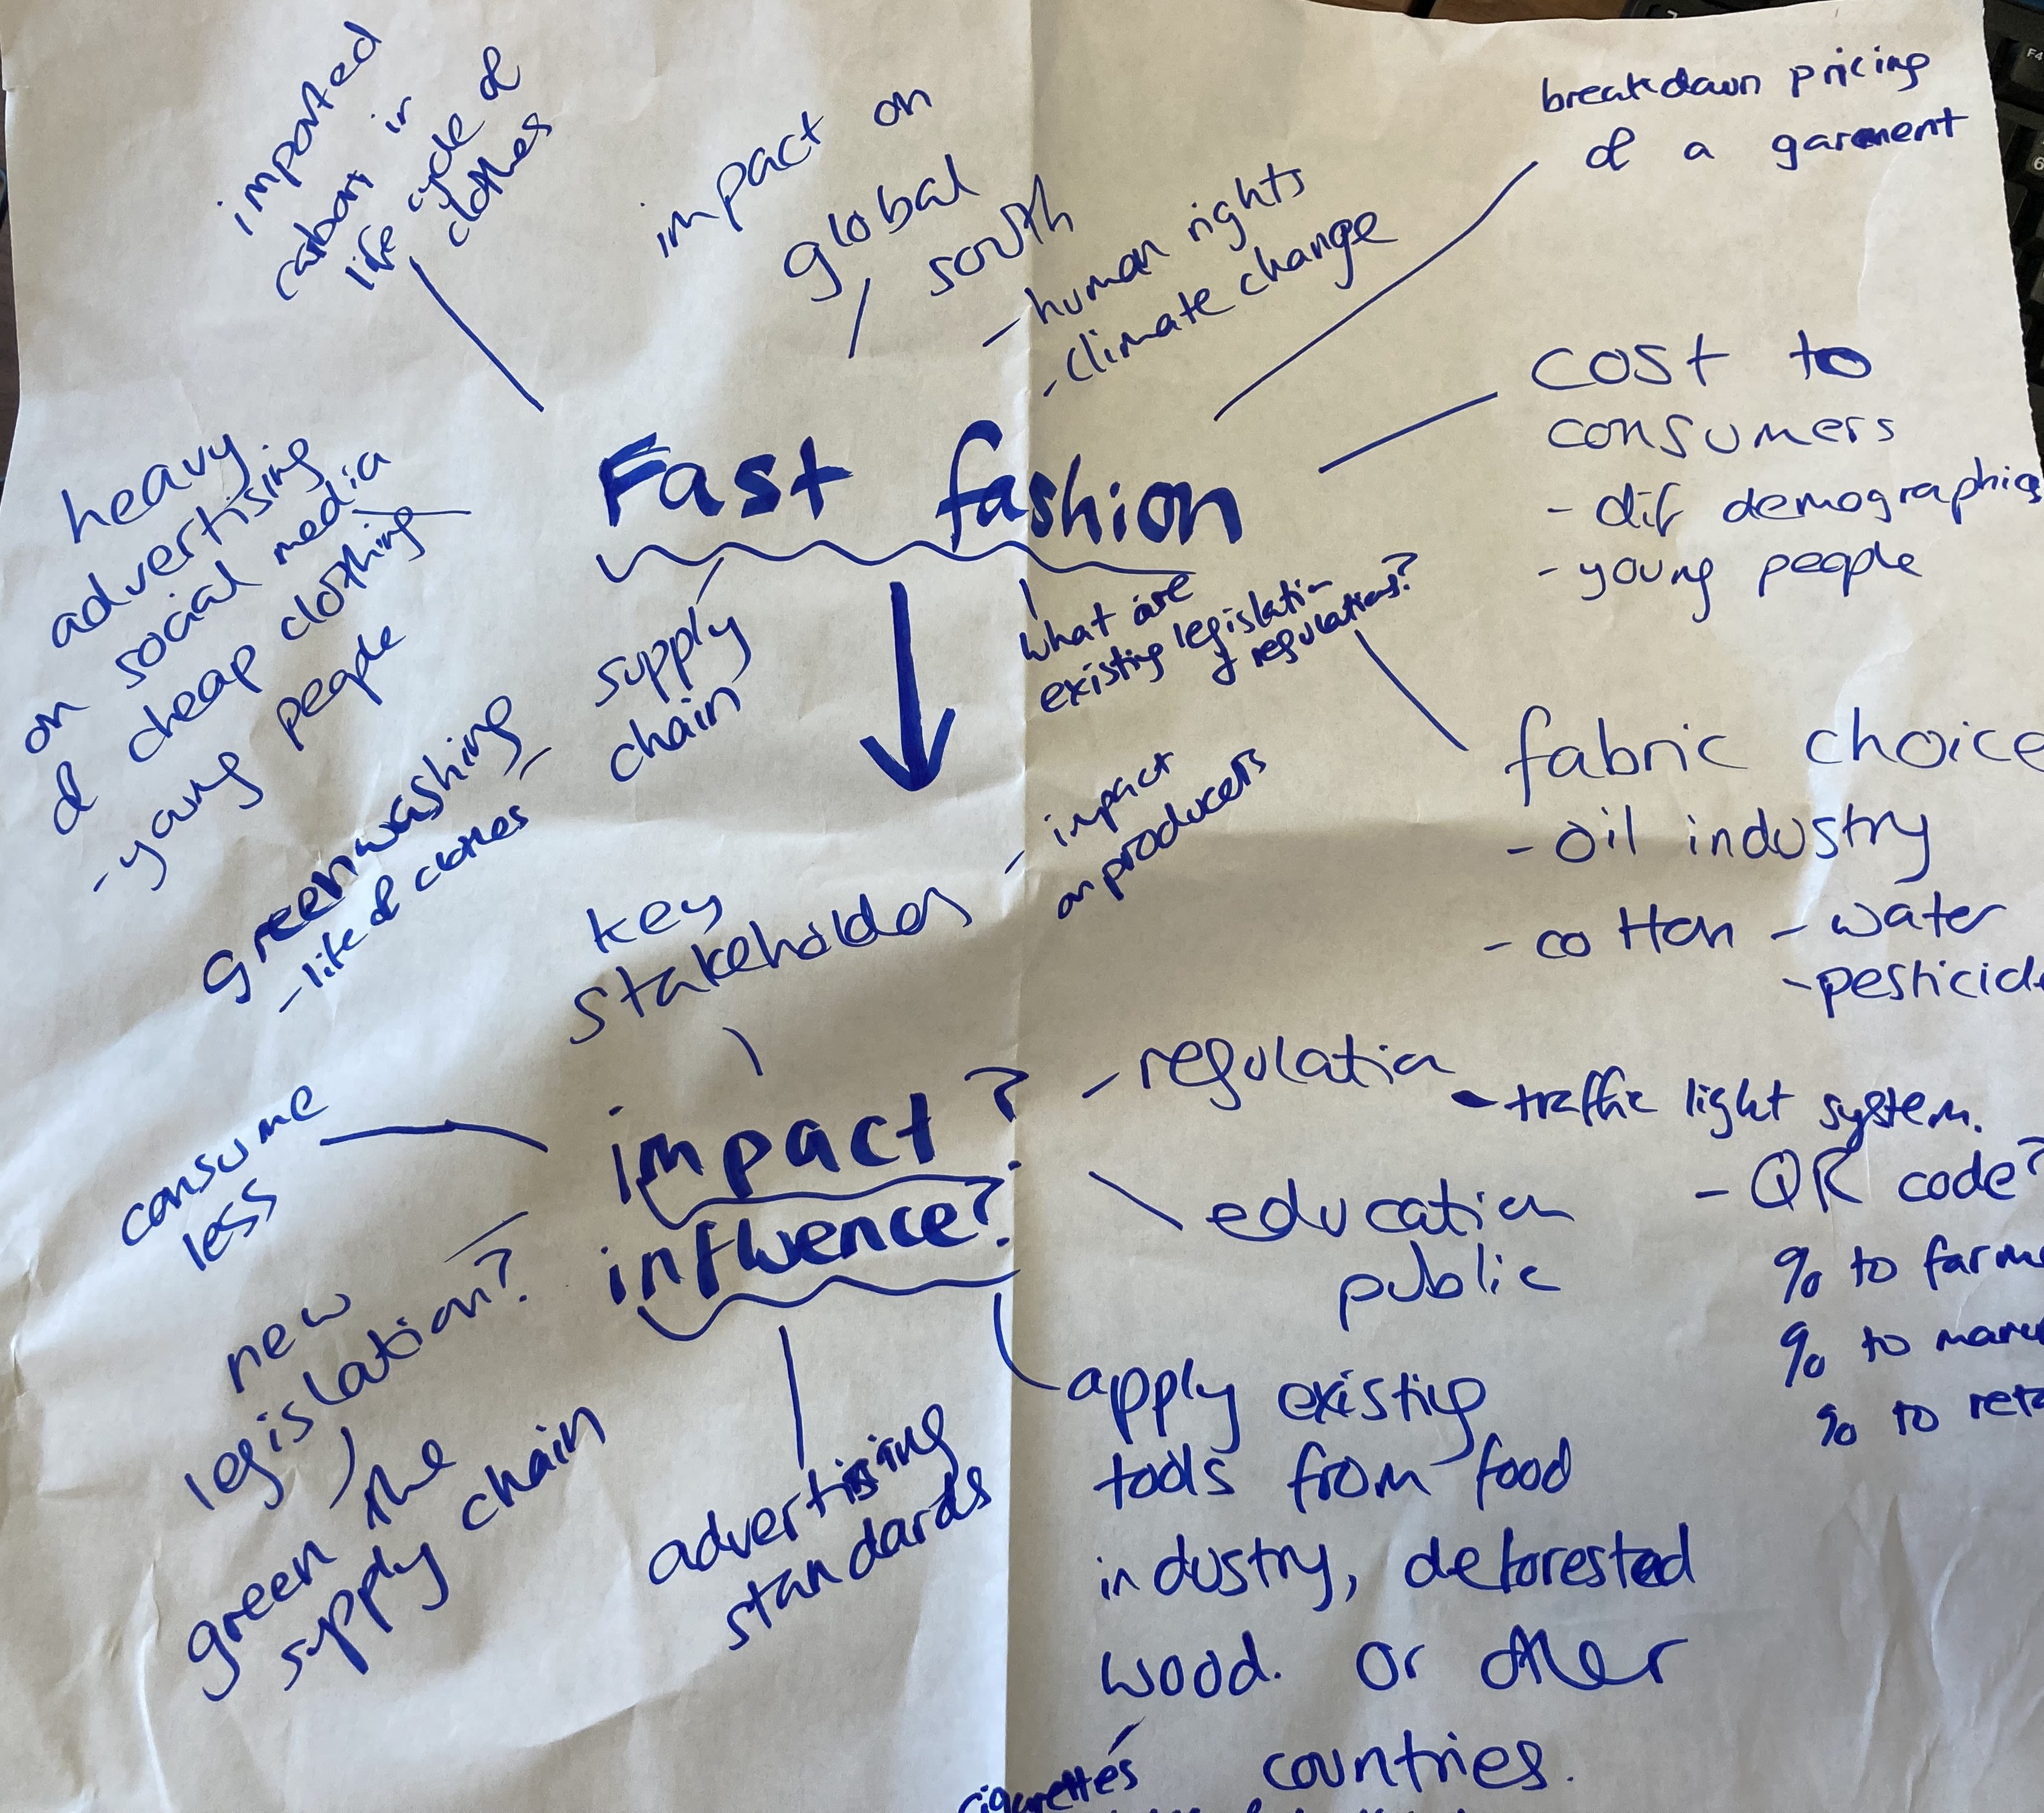 imported
carbon in
life cycle of
clothes
impact on
global
south
- human rights
- climate change
breakdown pricing
of a garment
cost to
consumers
- dif demographics
- young people
Fast fashion
heavy
advertising
on social media
of cheap clothing
- young people
supply
chain
what are
existing legislation
& regulations?
greenwashing
- life of clothes
fabric choice
- oil industry
- cotton - water
- pesticide
key
stakeholders
- impact
on producers
impact?
influence?
- regulation
- traffic light system.
- QR code?
% to farme
% to manu
% to reta
education
public
consume
less
new
legislation?
green the
supply chain
advertising
standards
apply existing
tools from food
industry, deforested
wood. or other
countries.
cigarettes